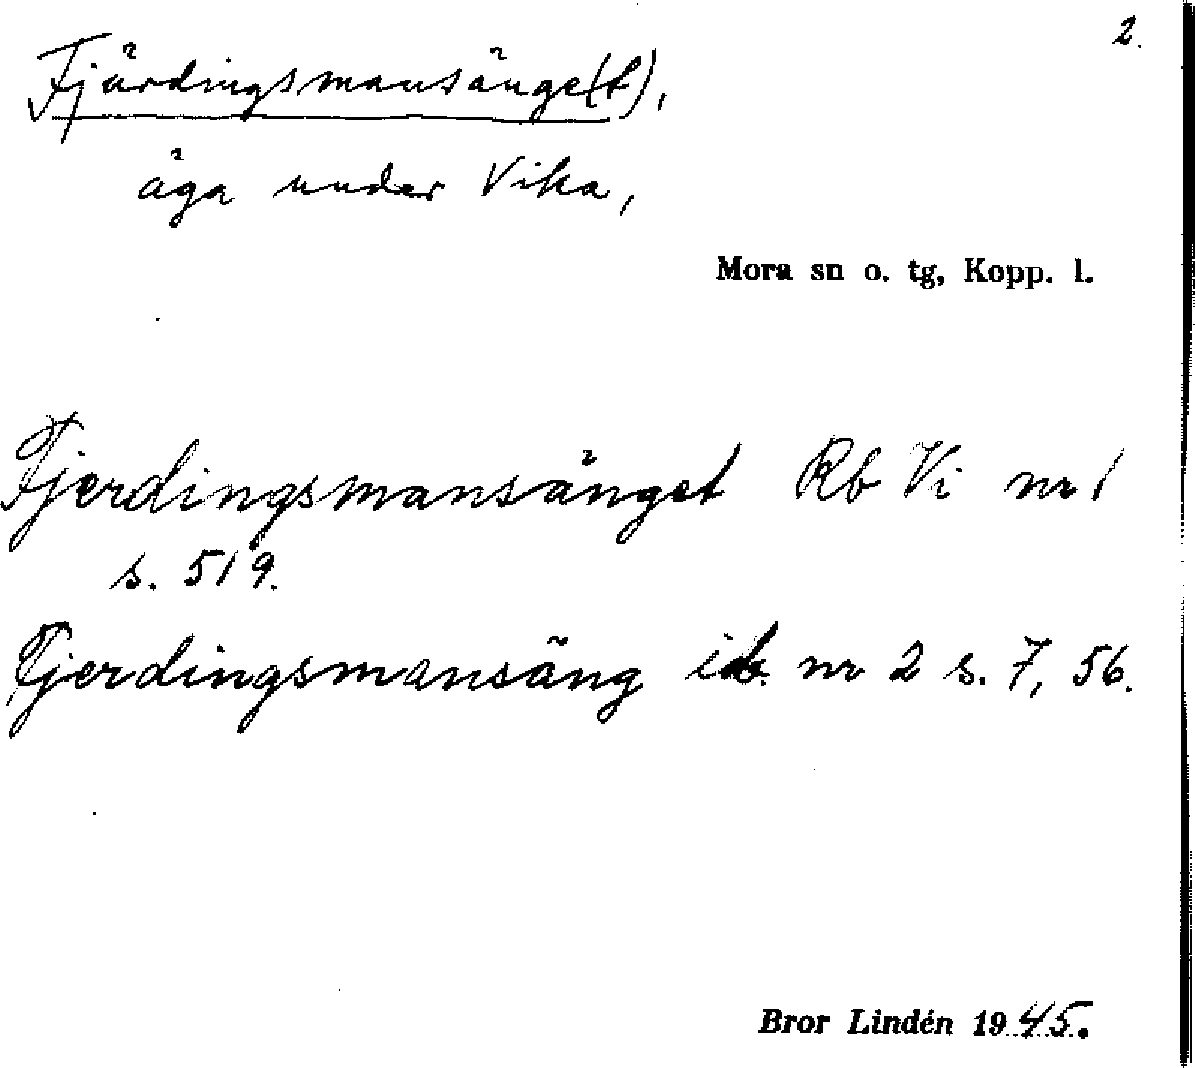 2.
Fjärdingsmansänge(t),
äga under Vika,
Mora sn o. tg, Kopp. l.
Fjerdingsmansänget Rb Vi nr 1
s. 519.
Fjerdingsmansäng ib. nr 2 s. 7, 56.
Bror Lindén 1945.